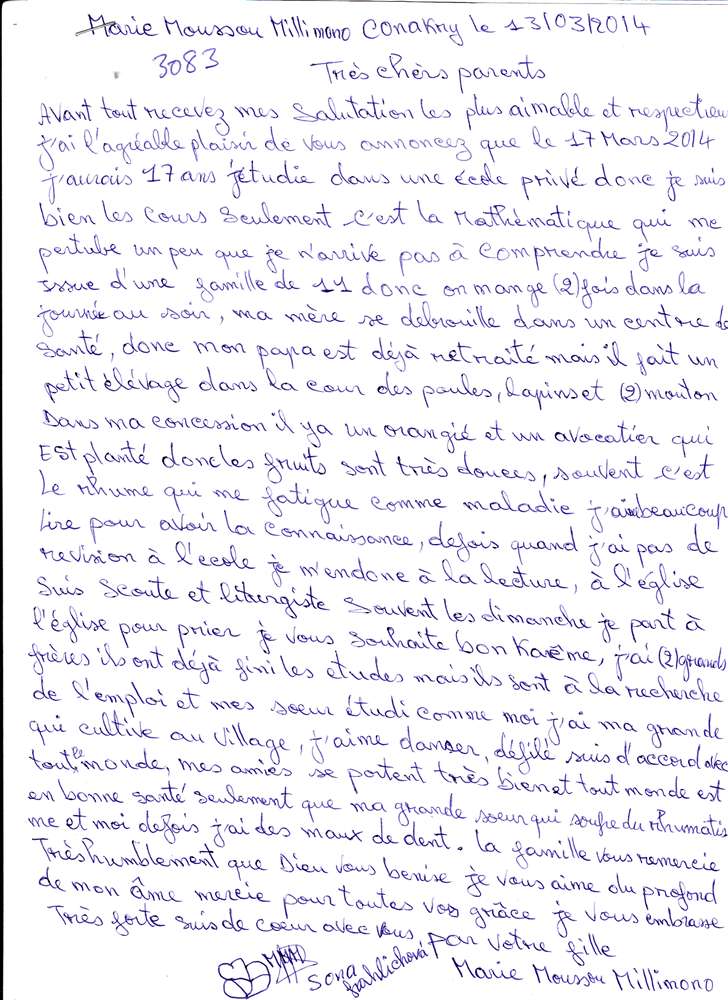 Marie Moussou Millimono Conakry le 13/03/2014
3083
Très chèrs parents
Avant tout recevez mes Salutation les plus aimable et respectieu
j'ai l'agréable plaisir de vous annoncez que le 17 Mars 2014
j'aurais 17 ans j'étudie dans une école privé donc je suis
bien les cours seulement c'est la Mathématique qui me
pertube un peu que je n'arrive pas à comprendre je suis
issue d'une famille de 11 donc on mange (2) fois dans la
journée au soir, ma mère se debrouille dans un centre de
Santé, donc mon papa est déjà retraité mais il fait un
petit élévage dans la cour des poules, lapins et (2) mouton
Dans ma concession il ya un orangié et un avocatier qui
EST planté donc les fruits sont très douces, souvent c'est
Le Rhume qui me fatigue comme maladie j'ai beaucoup
Lire pour avoir la connaissance, defois quand j'ai pas de
revision à l'école je m'endone à la lecture, à l'église
Suis Scoute et liturgiste Souvent les dimanche je part à
l'église pour prier je vous souhaite bon Karême, j'ai (2) grands
frères ils ont déjà fini les etudes mais ils sont à la recherche
de l'emploi et mes soeur étudi comme moi j'ai ma grande
qui cultive au village, j'aime danser, défilé suis d'accord avec
tout le monde, mes amies se portent très bien et tout monde est
en bonne santé seulement que ma grande soeur qui soufre du Rhumatis
me et moi defois j'ai des maux de dent. la famille vous remercie
Très humblement que Dieu vous benise je vous aime du profond
de mon âme mercie pour toutes vos grâce je vous embrasse
Très forte suis de coeur avec vous par votre fille
Sona
Frahlichová
Marie Moussou Millimono